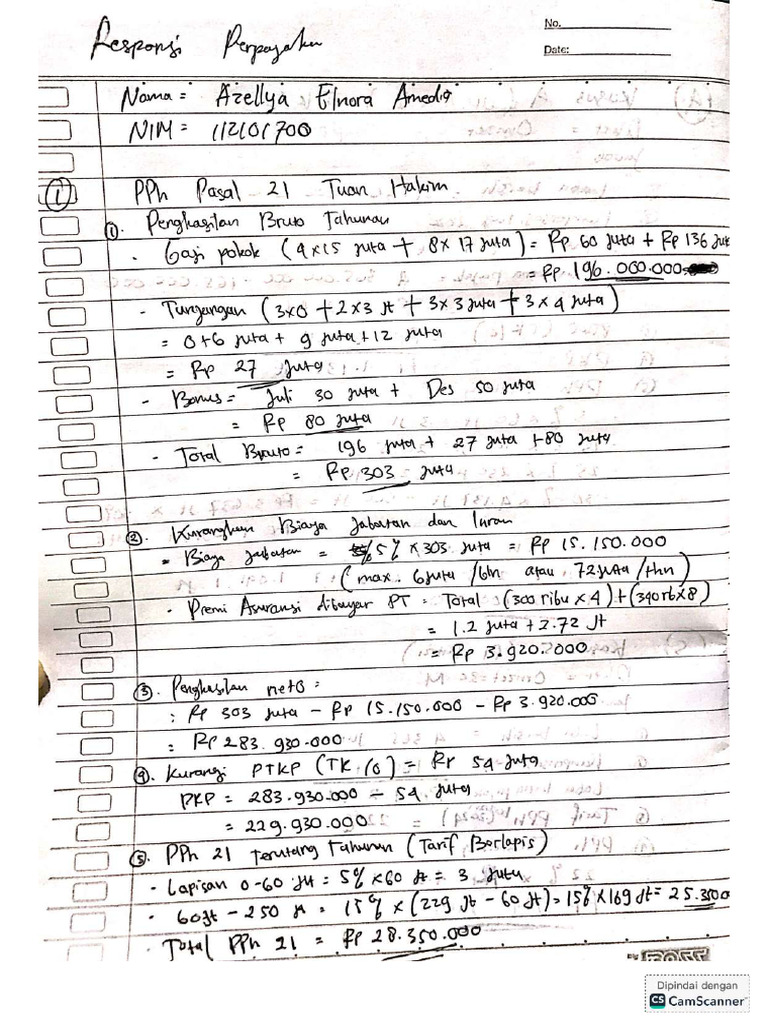 No.
Responsi Perpajakan
Date:
Nama = Azellya Elnora Amedia
NIM = 112101700
① PPh Pasal 21 Tuan Hakim
①. Penghasilan Bruto Tahunan
- Gaji pokok (4x15 juta + 8x17 juta) = Rp 60 juta + Rp 136 jut
= Rp 196.000.000
- Tunjangan (3x0 + 2x3 jt + 3x3 juta + 3x4 juta)
= 0+6 juta + 9 juta+12 juta
= Rp 27 juta
- Bonus = Juli 30 juta + Des 50 juta
= Rp 80 juta
- Total Bruto = 196 juta + 27 juta +80 juta
= Rp 303 juta
②. Kurangkan Biaya Jabatan dan Iuran
- Biaya Jabatan = 5% x 303 juta = Rp 15.150.000
(max. 6juta /bln atau 72juta/thn)
- Premi Asuransi dibayar PT = Total (300 ribu x 4)+(340rbx8)
= 1.2 juta + 2.72 Jt
= Rp 3.920.000
③. Penghasilan neto :
: Rp 303 juta - Rp 15.150.000 - Rp 3.920.000
: Rp 283.930.000
④. Kurangi PTKP (TK/0) = Rp 54 juta
PKP = 283.930.000 - 54 juta
= 229.930.000
⑤. PPh 21 Terutang Tahunan (Tarif Berlapis)
- Lapisan 0-60 jt = 5% x 60 jt = 3 juta
- 60jt - 250 jt = 15% x (229 jt - 60 jt) = 15% x 169 jt = 25.350
- Total PPh 21 = Rp 28.350.000
Dipindai dengan
CS CamScanner